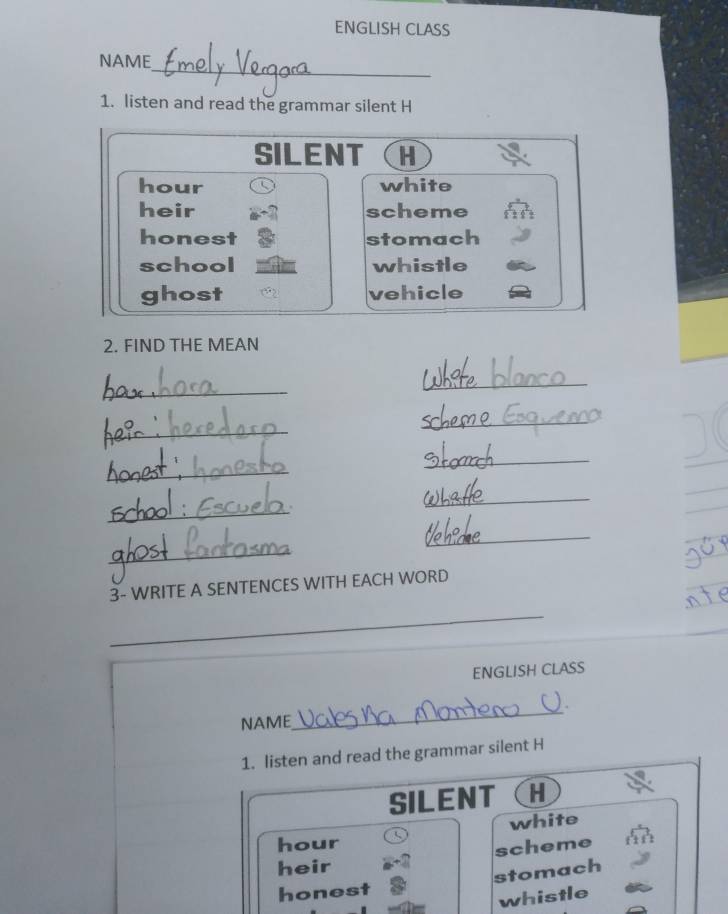 ENGLISH CLASS
NAME Emely Vergara
1. listen and read the grammar silent H
SILENT H
hour white
heir scheme
honest stomach
school whistle
ghost vehicle
2. FIND THE MEAN
hora White blanco
heir: heredero scheme Esquema
honest: honesto Stomach
school: Escuela
ghost fantasma
3- WRITE A SENTENCES WITH EACH WORD
ENGLISH CLASS
NAME Valeska Montero V.
1. listen and read the grammar silent H
SILENT H
hour white
heir scheme
honest stomach
whistle